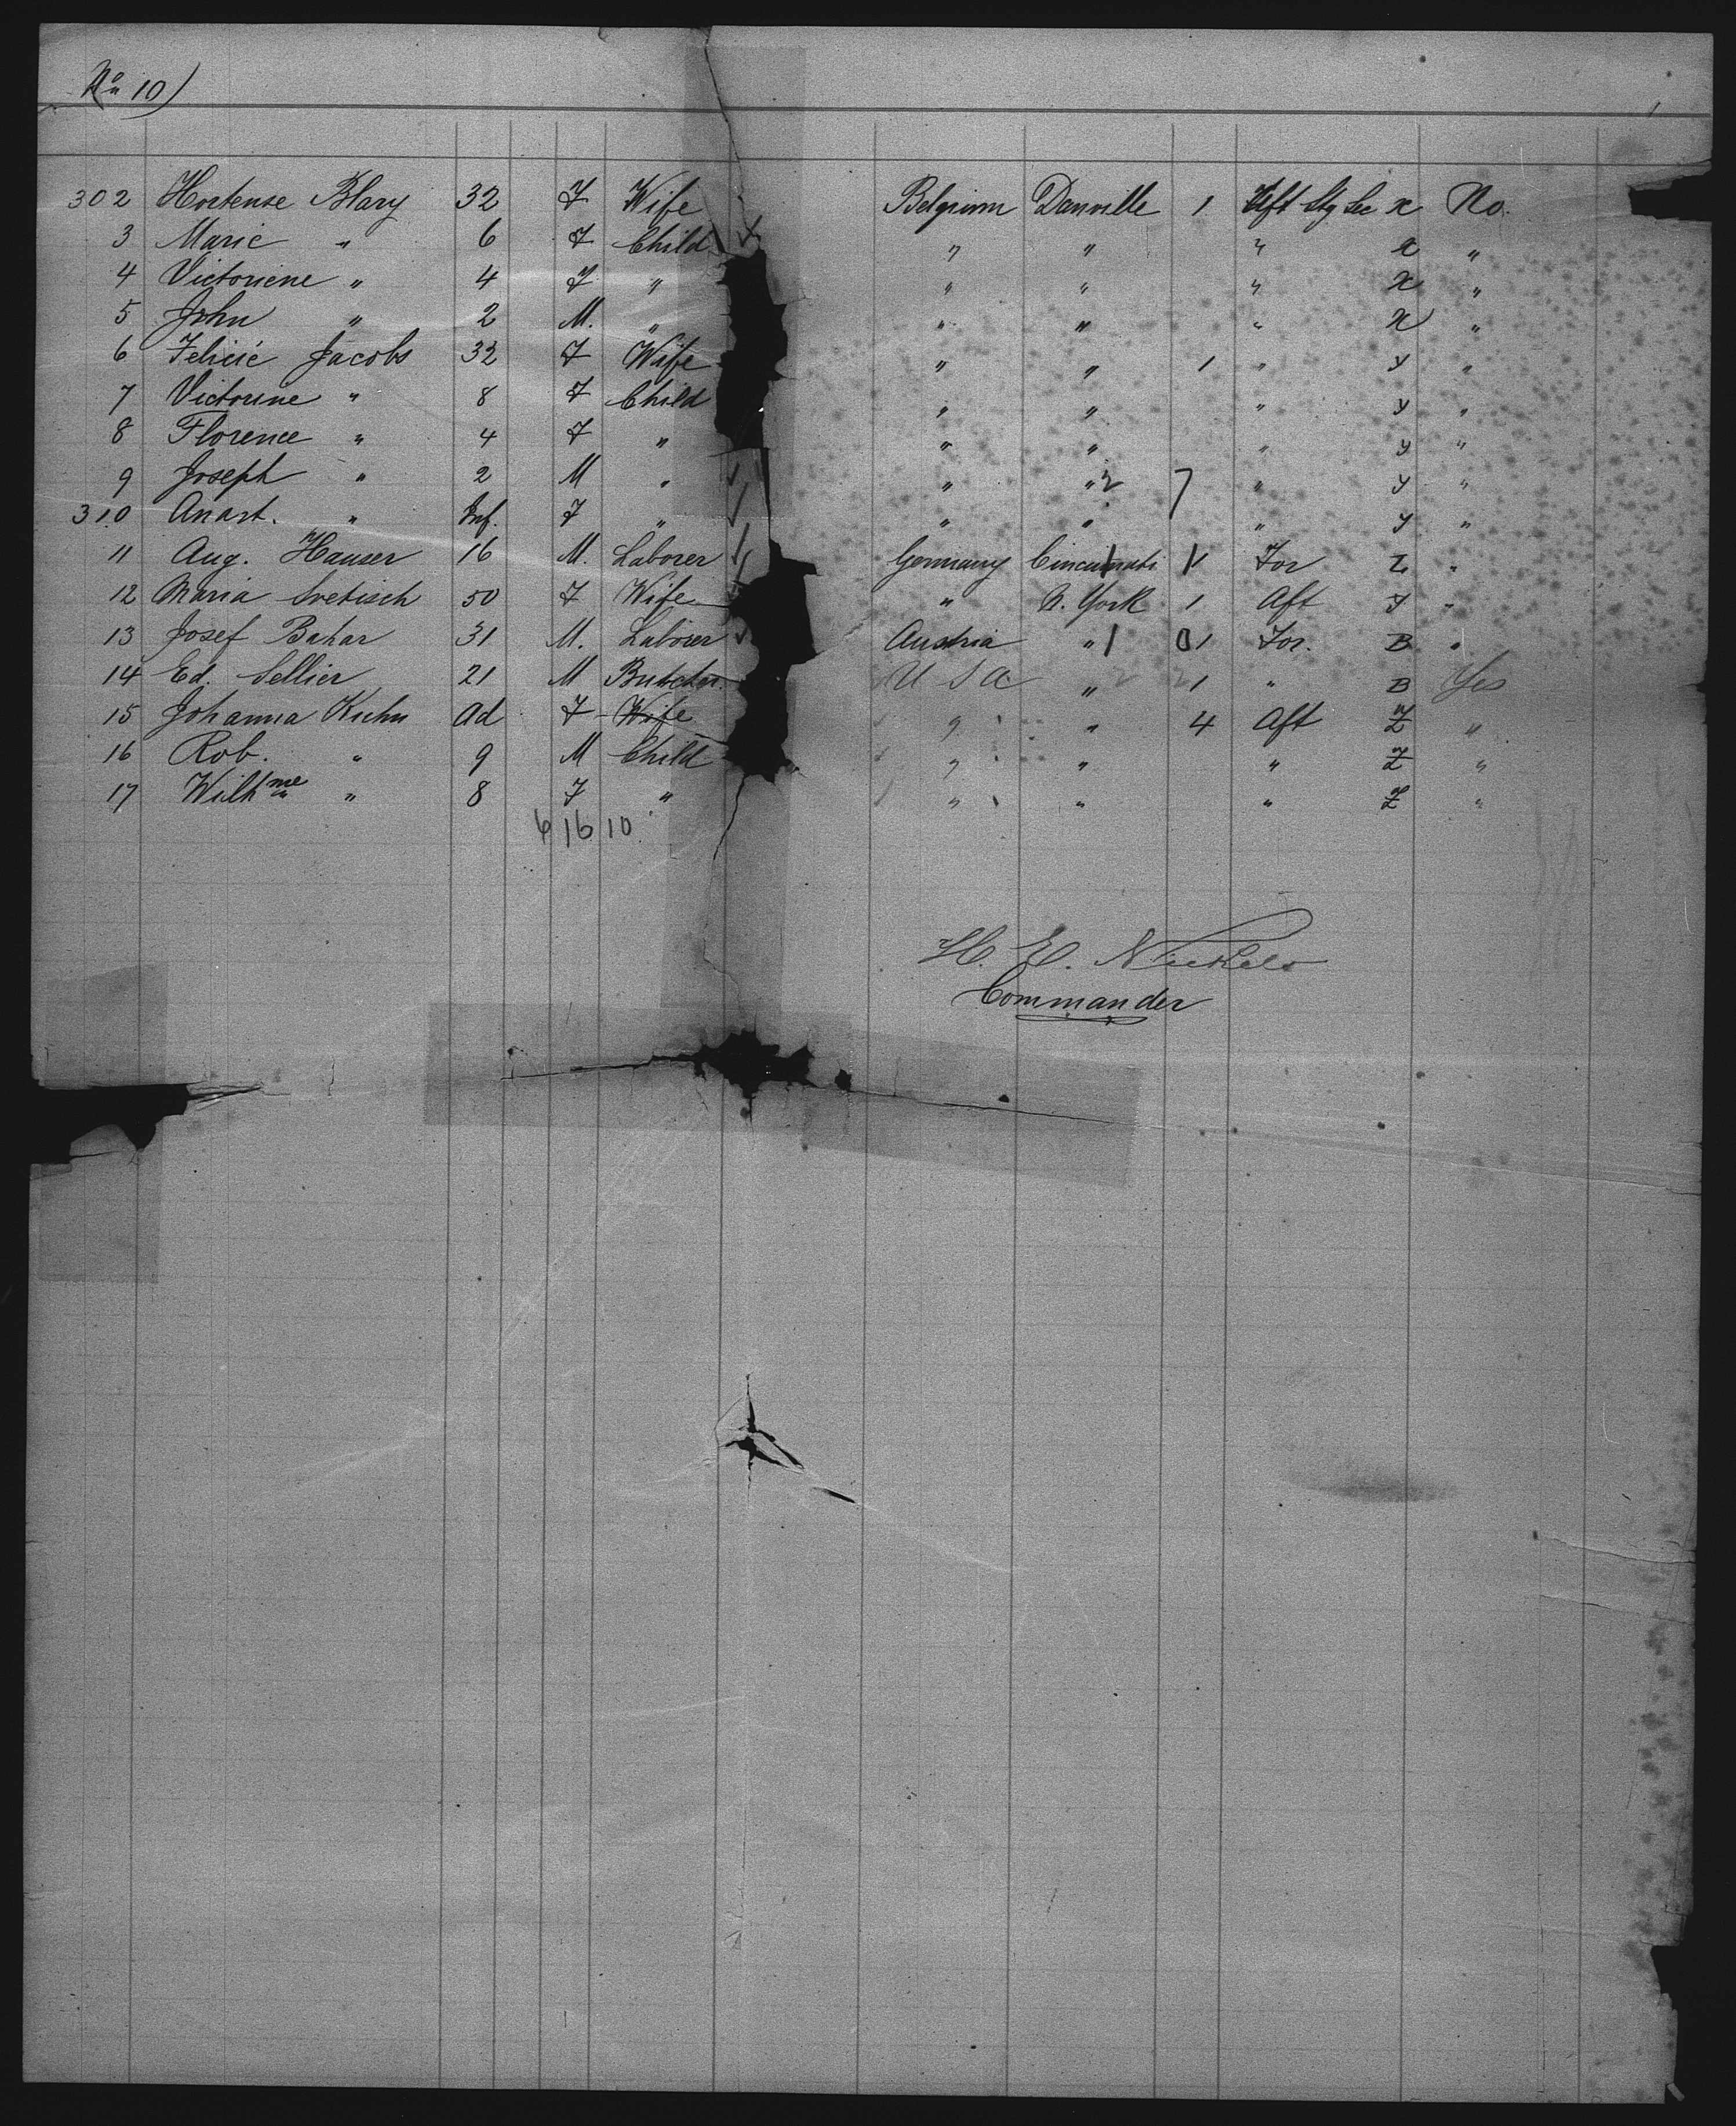 No 10)
302 Hortense Blary 32 F Wife Belgium Danville 1 Aft Stg Sec x No.
3 Marie " 6 F Child " " " x "
4 Victoriene " 4 F " " " " x "
5 John " 2 M. " " " " x "
6 Felicie Jacobs 32 F Wife " " 1 " y "
7 Victorine " 8 F Child " " " y "
8 Florence " 4 F " " " " y "
9 Joseph " 2 M " " " 2 7 " y "
310 Anast. " Inf. F " " " " y "
11 Aug. Hauser 16 M. Laborer Germany Cincinnati 1 For Z "
12 Maria Svetisch 50 F Wife " N. York 1 Aft y "
13 Josef Bahar 31 M. Laborer Austria " 1 1 For. B "
14 Ed. Sellier 21 M Butcher. U S A " 1 " B Yes
15 Johanna Kuhn Ad F Wife " " 4 Aft Z "
16 Rob. " 9 M Child " " " Z "
17 Wilhme " 8 F " " " " Z "
6 16 10
H. E. Nickels
Commander